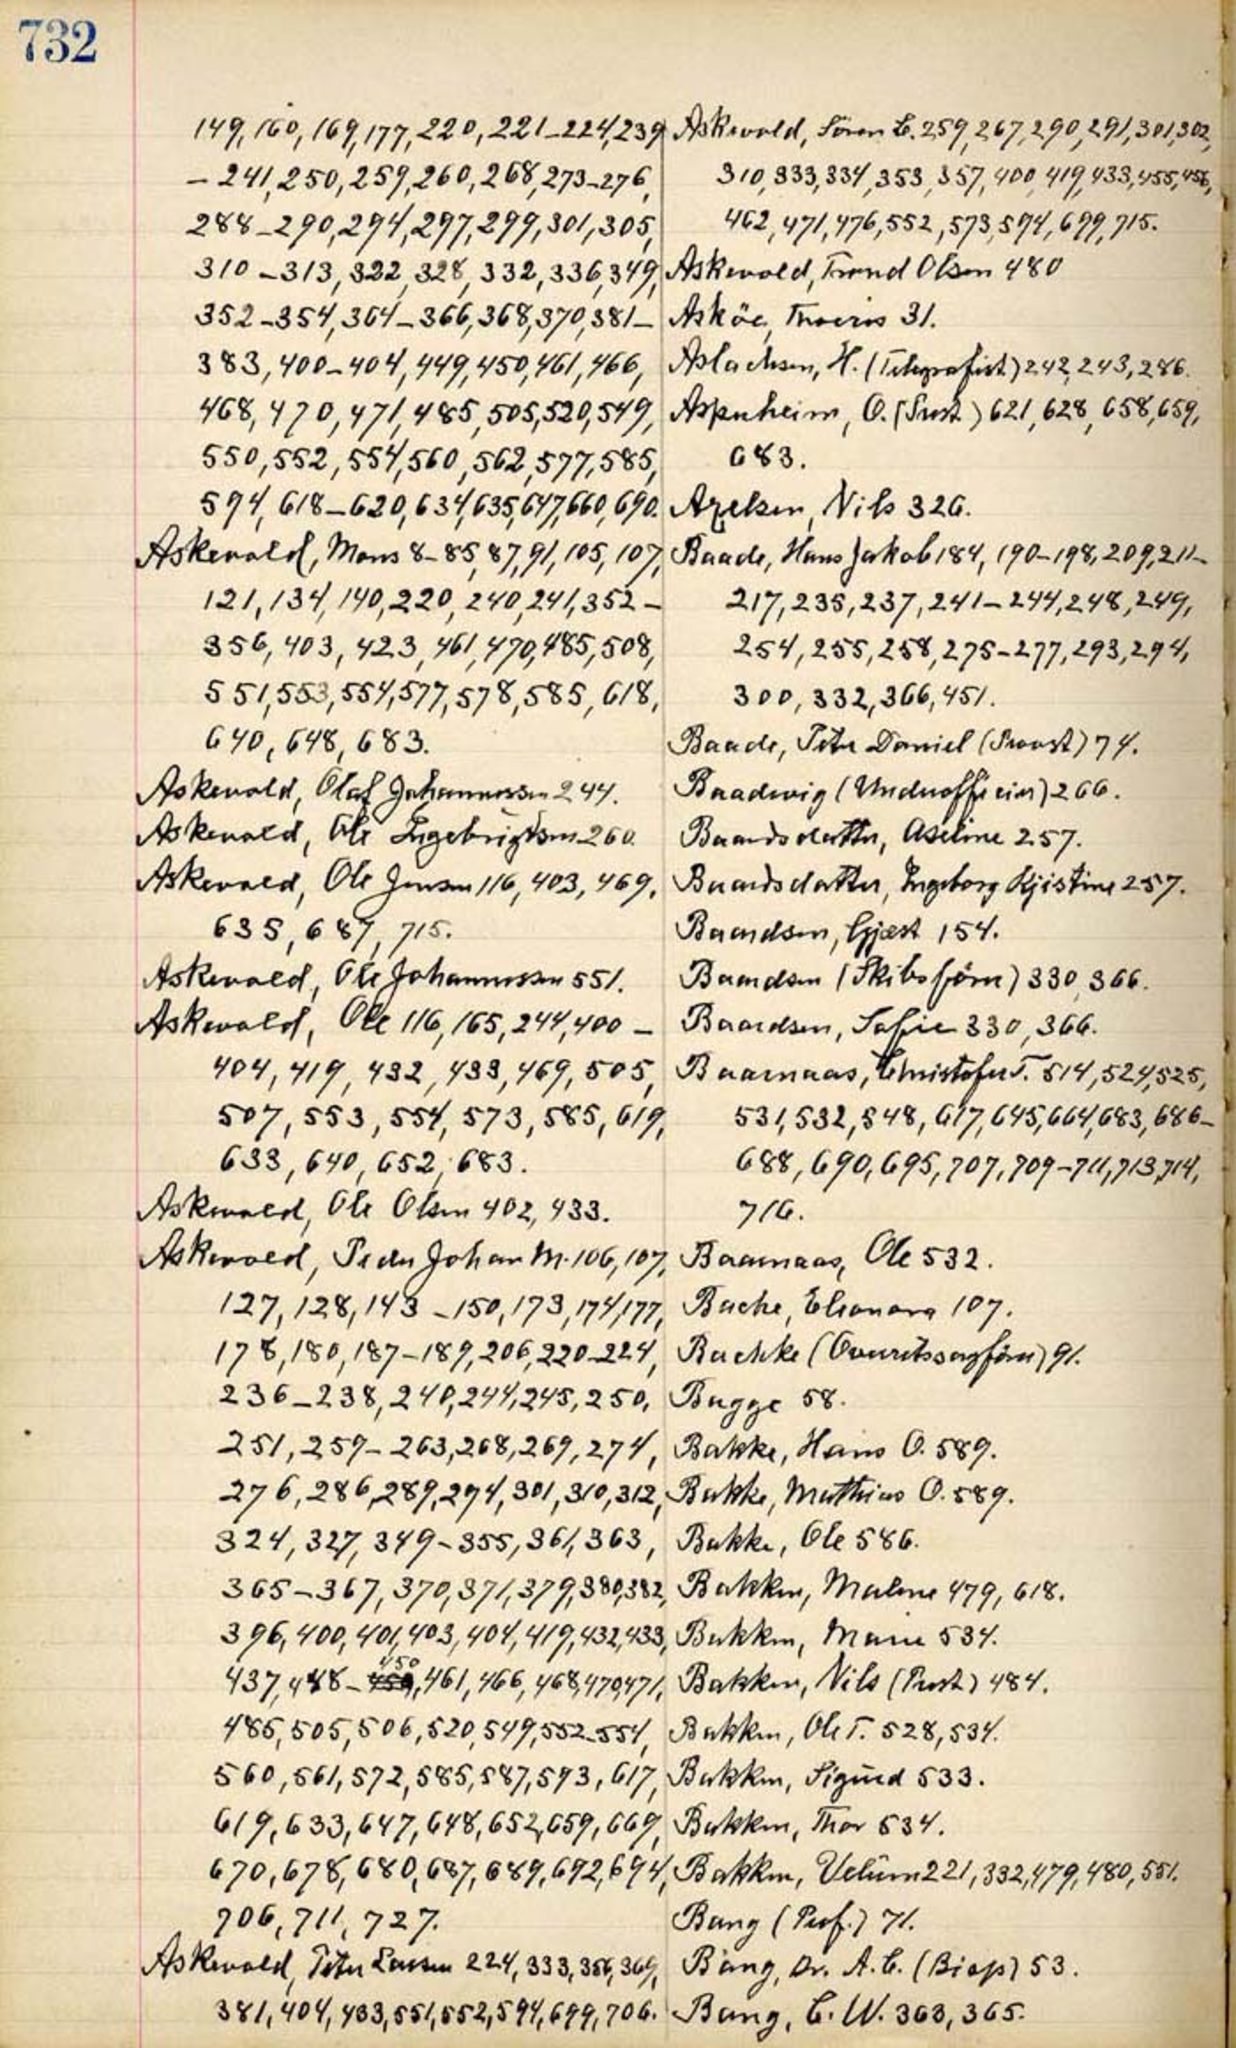 732
149, 160, 169, 177, 220, 221-224, 239
- 241, 250, 259, 260, 268, 273-276,
288-290, 294, 297, 299, 301, 305,
310-313, 322, 328, 332, 336, 349,
352-354, 364-366, 368, 370, 381-
383, 400-404, 449, 450, 461, 466,
468, 470, 471, 485, 505, 520, 549,
550, 552, 554, 560, 562, 577, 585,
594, 618-620, 634, 635, 647, 660, 690.
Askevold, Mons 8-85, 87, 91, 105, 107,
121, 134, 140, 220, 240, 241, 352-
356, 403, 423, 461, 470, 485, 508,
551, 553, 554, 577, 578, 585, 618,
640, 648, 683.
Askevold, Olaf Johannessen 244.
Askevold, Ole Ingebrigtsen 260.
Askevold, Ole Jensen 116, 403, 469,
635, 687, 715.
Askevold, Ole Johannessen 551.
Askevold, Ole 116, 165, 244, 400-
404, 419, 432, 433, 469, 505,
507, 553, 554, 573, 585, 619,
633, 640, 652, 683.
Askevold, Ole Olsen 402, 433.
Askevold, Peder Johan M. 106, 107,
127, 128, 143-150, 173, 174, 177,
178, 180, 187-189, 206, 220-224,
236-238, 240, 244, 245, 250,
251, 259-263, 268, 269, 274,
276, 286, 289, 294, 301, 310, 312,
324, 327, 349-355, 361, 363,
365-367, 370, 371, 379, 380, 382,
396, 400, 401, 403, 404, 419, 432, 433,
437, 448-450, 461, 466, 468, 470, 471,
485, 505, 506, 520, 549, 552-554,
560, 561, 572, 585, 587, 593, 617,
619, 633, 647, 648, 652, 659, 669,
670, 678, 680, 687, 689, 692, 694,
706, 711, 727.
Askevold, Peter Larsen 224, 333, 356, 369,
381, 404, 433, 551, 552, 594, 699, 706.
Askevold, Sören C. 259, 267, 290, 291, 301, 302,
310, 333, 334, 353, 357, 400, 419, 433, 455, 456,
462, 471, 476, 552, 573, 594, 699, 715.
Askevold, Trond Olsen 480
Asköe, 31.
Aslachsen, H. (Telegrafist) 242, 243, 286.
Aspenheim, O. (Prest.) 621, 628, 658, 659,
683.
Axelsen, Nils 326.
Baade, Hans Jakob 184, 190-198, 209, 211-
217, 235, 237, 241-244, 248, 249,
254, 255, 258, 275-277, 293, 294,
300, 332, 366, 451.
Baade, Peter Daniel (Provst) 74.
Baadevig (Underofficier) 266.
Baardsdatter, Aseline 257.
Baardsdatter, Ingeborg Kjistine 257.
Baardsen, Gjæst 154.
Baardsen (Skibsförer) 330, 366.
Baardsen, Sofie 330, 366.
Baarnaas, Christofer T. 514, 524, 525,
531, 532, 548, 617, 645, 664, 683, 686-
688, 690, 695, 707, 709-711, 713, 714,
716.
Baarnaas, Ole 532.
Bache, Eleonora 107.
Bachke (Overretssagförer) 91.
Bagge 58.
Bakke, Hans O. 589.
Bakke, Mathias O. 589.
Bakke, Ole 586.
Bakken, Malene 479, 618.
Bakken, Marie 534.
Bakken, Nils (Prest) 484.
Bakken, Ole T. 528, 534.
Bakken, Sigurd 533.
Bakken, Thor 534.
Bakken, 221, 332, 479, 480, 551.
Bang (Prof.) 71.
Bang, Dr. A. C. (Bisp) 53.
Bang, C. W. 363, 365.